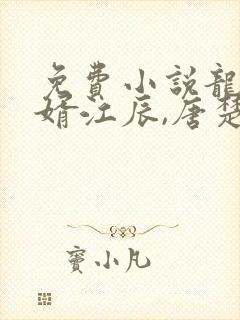 免費小説龍
婿江辰,唐楚
寶小凡